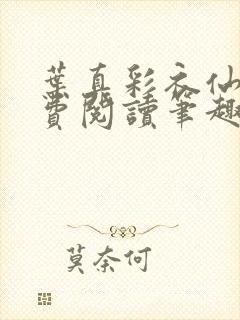 葉真彩衣仙
費閱讀筆趣
莫奈何